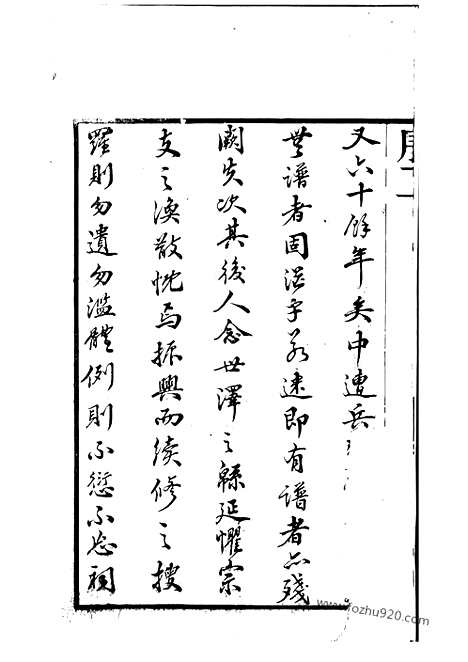 序二
又六十餘年矣中遭兵
無譜者固茫乎若迷即有譜者亦殘
闕失次其後人念世澤之緜延懼宗
支之渙散忱焉振興而續修之搜
羅則勿遺勿濫體例則不愆不忘祠
www.fozhu920.com